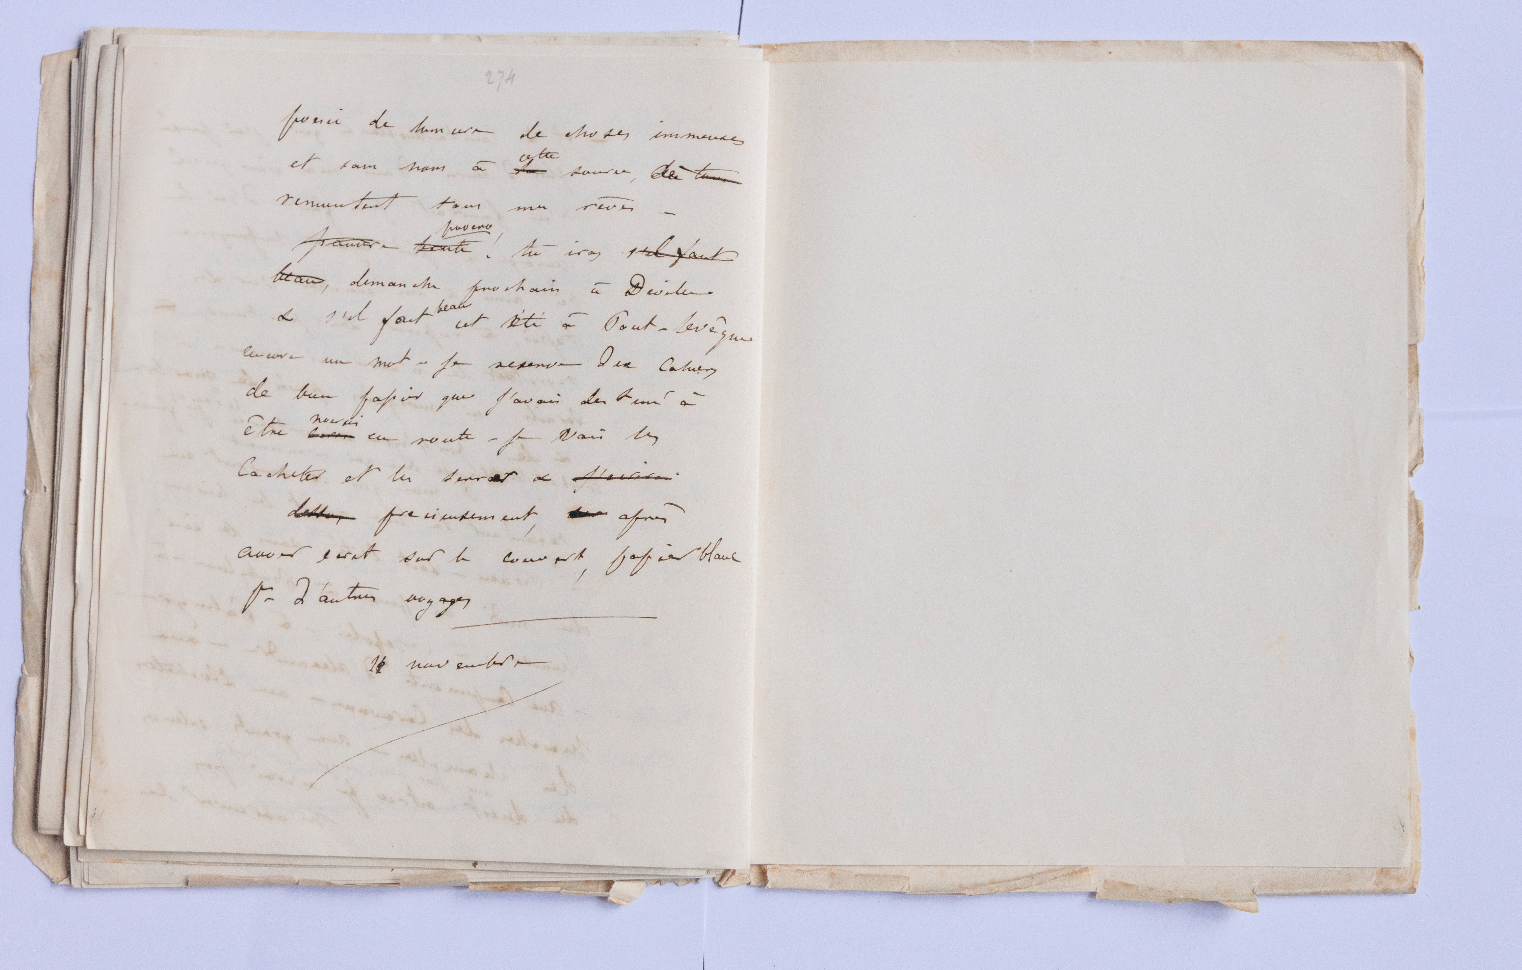 274
poésie de lumière de choses immenses
et sans nom à la cette source, de
remuutent sous mes rêves –
pauvre poverò! tu iras s'il faut
beau, dimanche prochain à Déville
& s'il fait beau cet été à Pont-l'évêque
encore un mot – je réserve dix cahiers
de bon papier que j'avais destiné à
être noircis en route – je vais les
cacheter et les serrer &
précieusement, après
avoir écrit sur le couvert, papier blanc
pr d'autres voyages
novembre